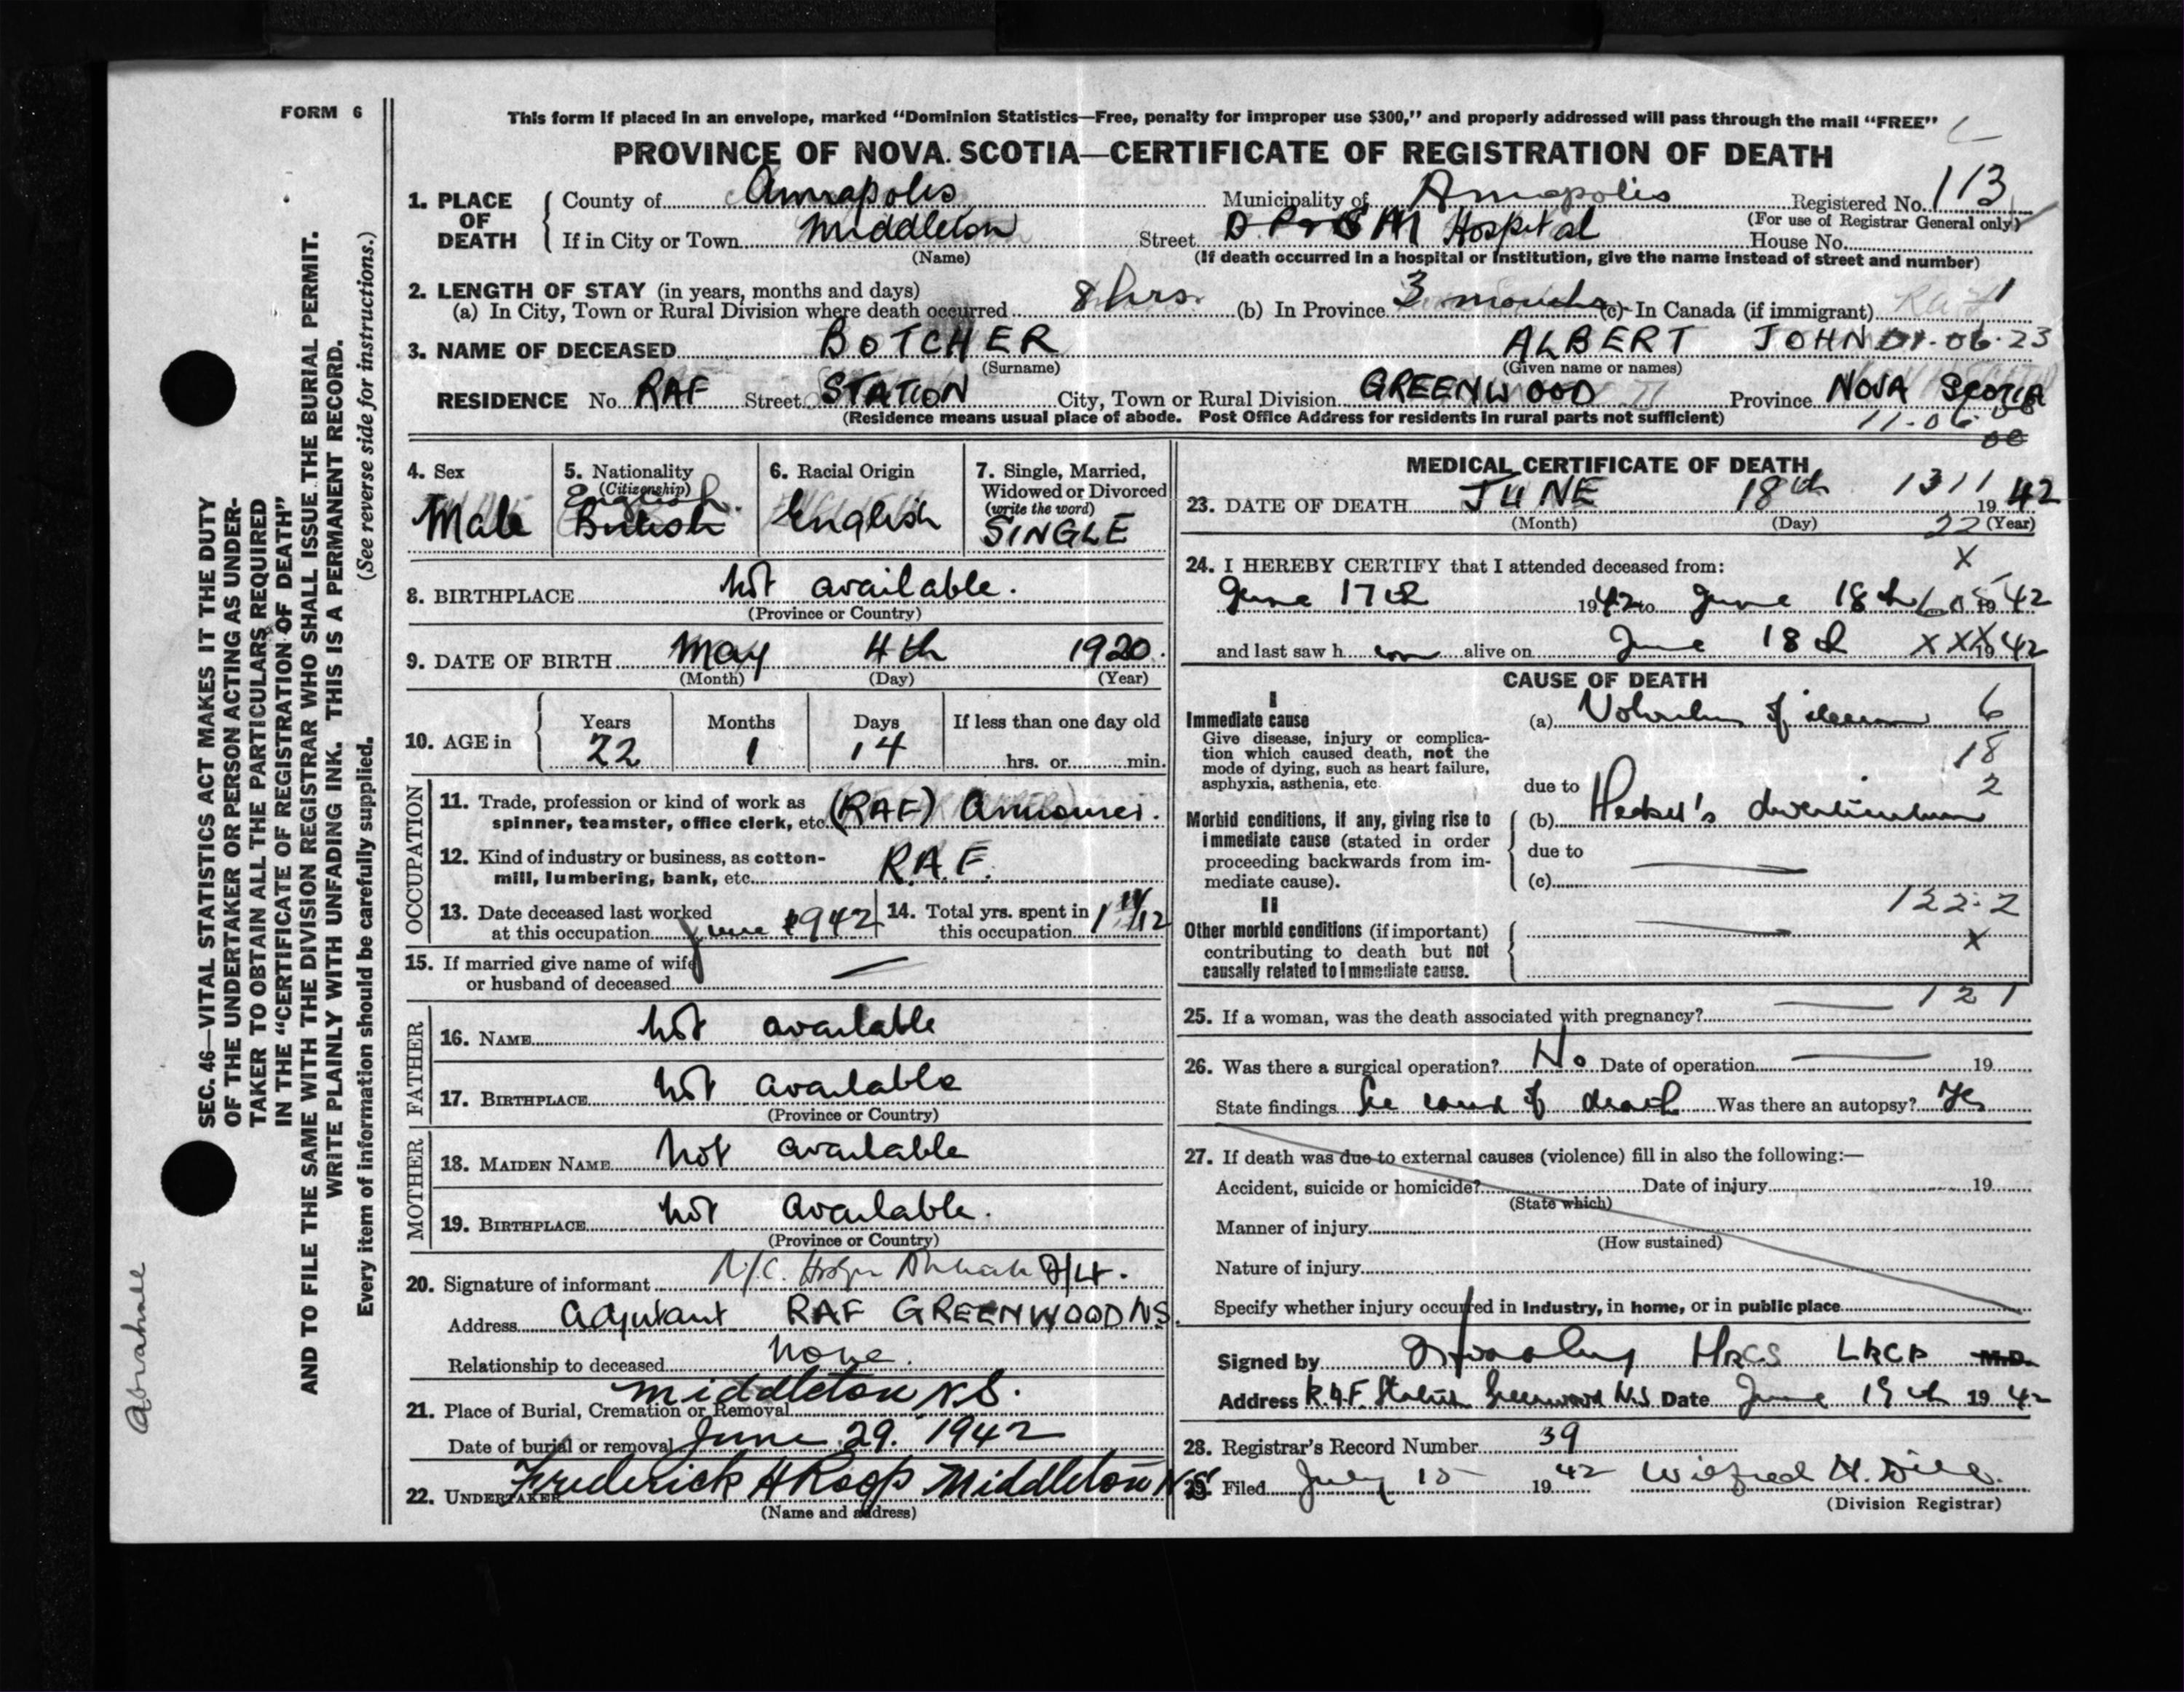 FORM 6
This form if placed in an envelope, marked "Dominion Statistics—Free, penalty for improper use $300," and properly addressed will pass through the mail "FREE"
PROVINCE OF NOVA SCOTIA—CERTIFICATE OF REGISTRATION OF DEATH
1. PLACE OF DEATH County of Annapolis Municipality of Annapolis Registered No. 113
(For use of Registrar General only)
If in City or Town Middleton Street Hospital House No.
(Name) (If death occurred in a hospital or institution, give the name instead of street and number)
2. LENGTH OF STAY (in years, months and days)
(a) In City, Town or Rural Division where death occurred 8 hrs. (b) In Province 3 months (c) In Canada (if immigrant)
3. NAME OF DECEASED BOTCHER ALBERT JOHN 01.06.23
(Surname) (Given name or names)
RESIDENCE No. RAF Street STATION City, Town or Rural Division GREENWOOD Province NOVA SCOTIA
(Residence means usual place of abode. Post Office Address for residents in rural parts not sufficient) 11-06
4. Sex Male
5. Nationality (Citizenship) English British
6. Racial Origin English
7. Single, Married, Widowed or Divorced (write the word) SINGLE
8. BIRTHPLACE Not available.
(Province or Country)
9. DATE OF BIRTH May 4th 1920.
(Month) (Day) (Year)
10. AGE in Years 22 Months 1 Days 14 If less than one day old hrs. or min.
OCCUPATION
11. Trade, profession or kind of work as spinner, teamster, office clerk, etc. (RAF) Armourer.
12. Kind of industry or business, as cotton-mill, lumbering, bank, etc. R.A.F.
13. Date deceased last worked at this occupation June 1942
14. Total yrs. spent in this occupation 1 11/12
15. If married give name of wife or husband of deceased —
FATHER
16. NAME Not available
17. BIRTHPLACE Not available
(Province or Country)
MOTHER
18. MAIDEN NAME Not available
19. BIRTHPLACE Not available.
(Province or Country)
20. Signature of informant
Address Adjutant RAF GREENWOOD NS.
Relationship to deceased None.
21. Place of Burial, Cremation or Removal Middleton N.S.
Date of burial or removal June 29. 1942
22. UNDERTAKER Frederick H Roop Middleton N.S.
(Name and address)
MEDICAL CERTIFICATE OF DEATH
23. DATE OF DEATH JUNE 18th 1311 1942
(Month) (Day) 22 (Year)
24. I HEREBY CERTIFY that I attended deceased from: X
June 17th 1942 to June 18th 1942
and last saw h im alive on June 18th XXX 1942
CAUSE OF DEATH
I
Immediate cause
Give disease, injury or complication which caused death, not the mode of dying, such as heart failure, asphyxia, asthenia, etc.
(a) Volvulus of ileum 6
18
due to 2
Morbid conditions, if any, giving rise to immediate cause (stated in order proceeding backwards from immediate cause).
(b) Meckel's diverticulum
due to
(c) —
122.2
II
Other morbid conditions (if important) contributing to death but not causally related to immediate cause. —
X
121
25. If a woman, was the death associated with pregnancy? —
26. Was there a surgical operation? No Date of operation — 19
State findings See cause of death Was there an autopsy? Yes
27. If death was due to external causes (violence) fill in also the following:—
Accident, suicide or homicide? Date of injury 19
(State which)
Manner of injury
(How sustained)
Nature of injury
Specify whether injury occurred in industry, in home, or in public place
Signed by MRCS LRCP M.D.
Address R.A.F. Station Greenwood N.S. Date June 19th 1942
28. Registrar's Record Number 39
29. Filed July 15 1942 Wilfred H. Dill
(Division Registrar)
SEC. 46—VITAL STATISTICS ACT MAKES IT THE DUTY
OF THE UNDERTAKER OR PERSON ACTING AS UNDER-
TAKER TO OBTAIN ALL THE PARTICULARS REQUIRED
IN THE "CERTIFICATE OF REGISTRATION OF DEATH"
AND TO FILE THE SAME WITH THE DIVISION REGISTRAR WHO SHALL ISSUE THE BURIAL PERMIT.
WRITE PLAINLY WITH UNFADING INK. THIS IS A PERMANENT RECORD.
Every item of information should be carefully supplied. (See reverse side for instructions.)